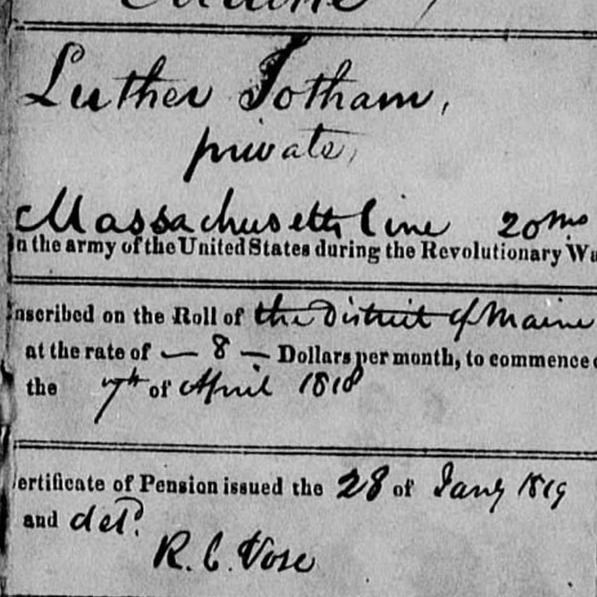 Luther Jotham,
private,
Massachusetts line 20 mos
In the army of the United States during the Revolutionary Wa
nscribed on the Roll of the District of Maine
at the rate of — 8 — Dollars per month, to commence o
the 7th of April 1818
ertificate of Pension issued the 28 of Jany 1819
and deld.
R. C. Vose